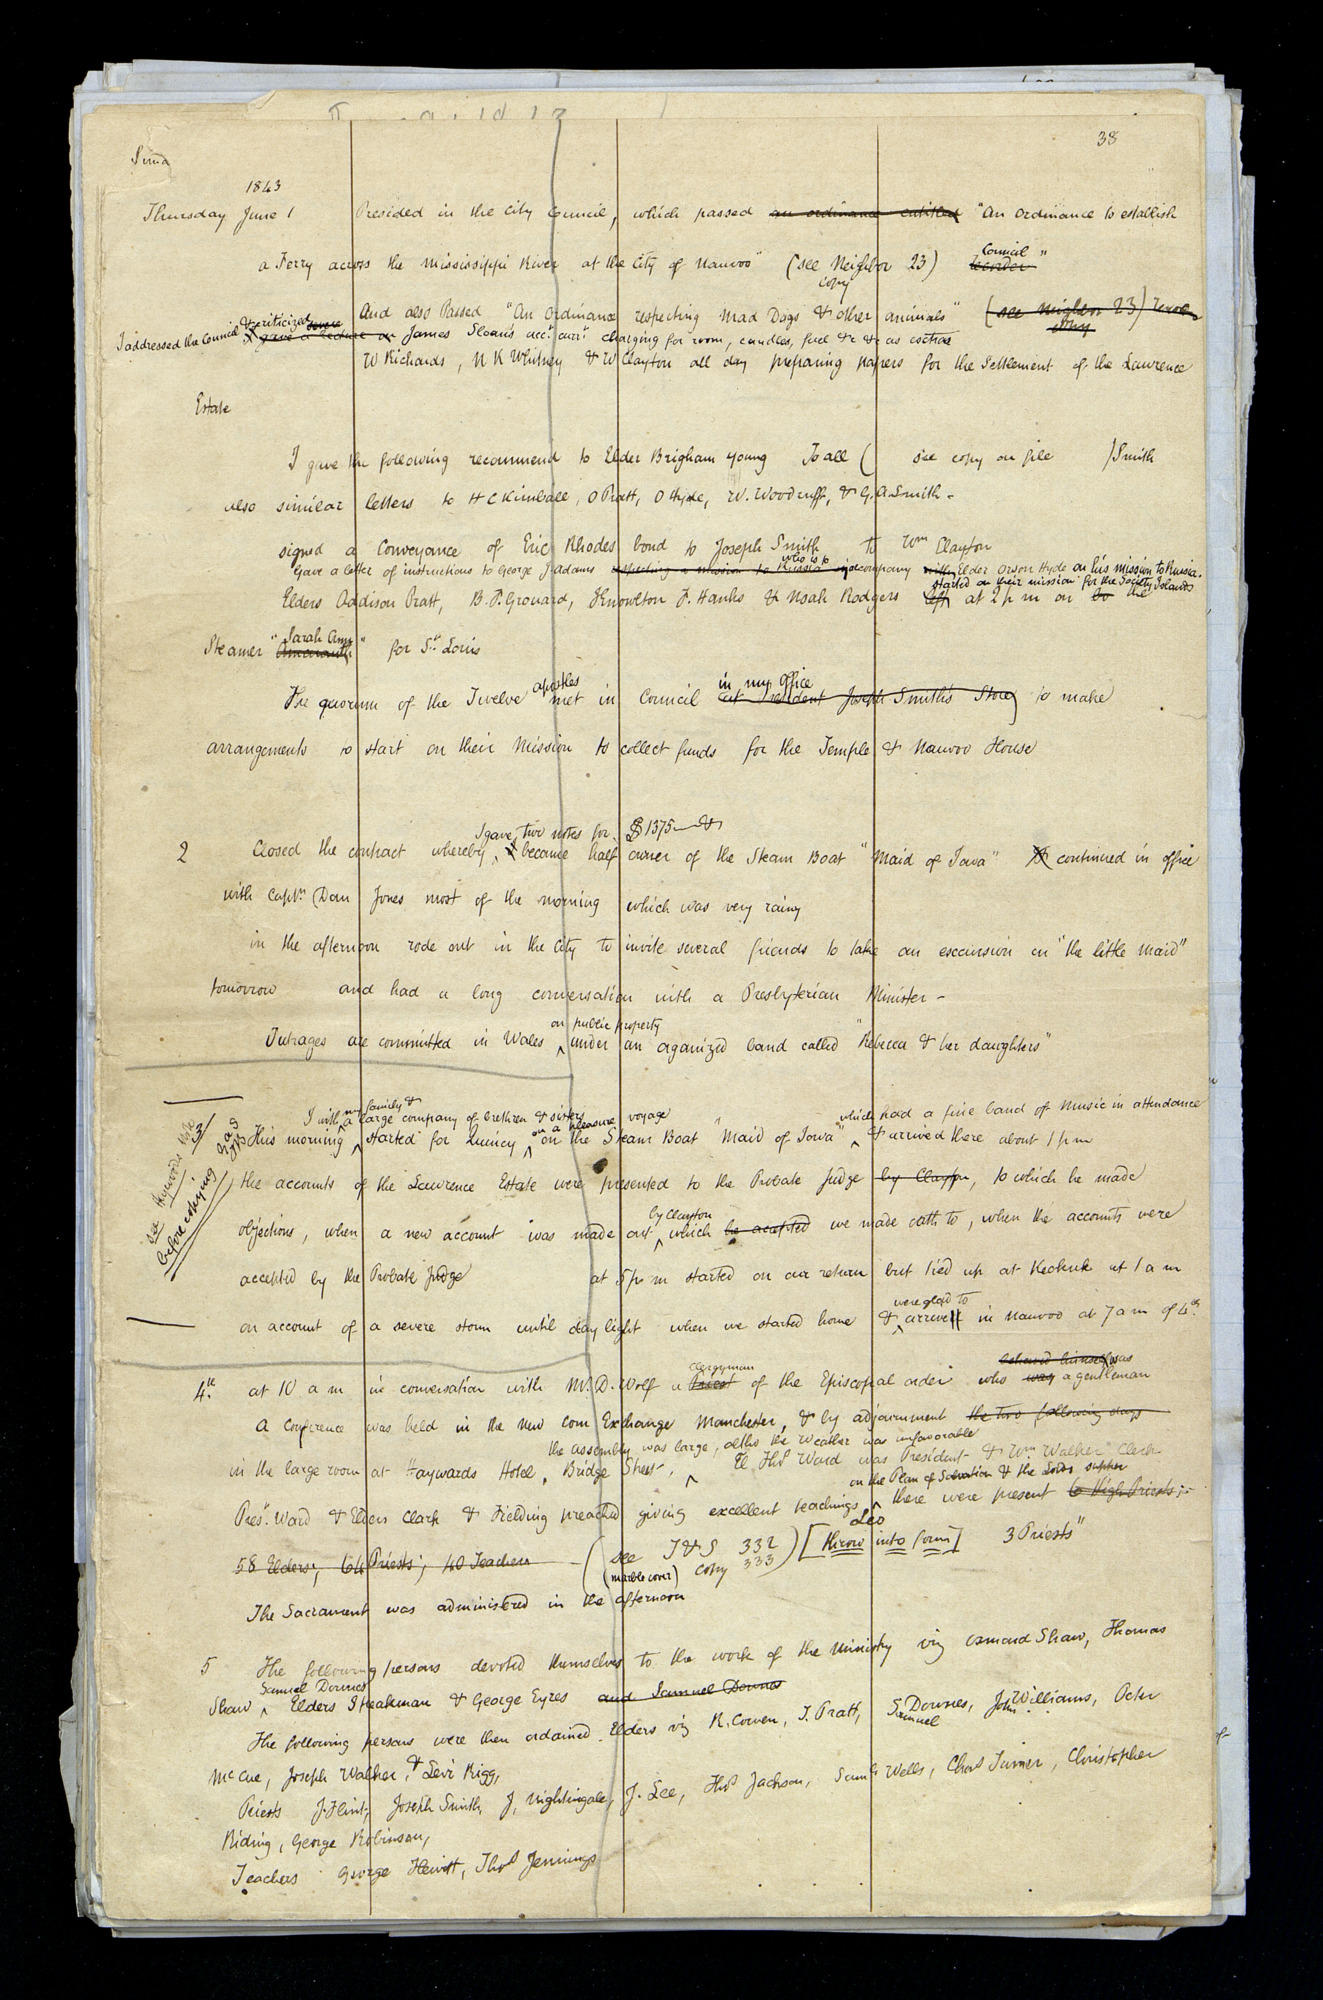 38
1843
Thursday June 1 Presided in the City Council, which passed an ordinance entitled "An Ordinance to establish
a Ferry across the Mississippi River at the City of Nauvoo" (see Neighbor 23) recorder Council "
copy
And also Passed "An Ordinance respecting Mad Dogs & other animals" (see Neighbor 23)
copy
I addressed the Council & criticized gave a lecture on James Sloan's acct. curt. charging for room, candles, fuel &c &c as extras
W Richards, N K Whitney & W Clayton all day preparing papers for the Settlement of the Lawrence
Estate
I gave the following recommend to Elder Brigham Young To all ( see copy on file ) Smith
also similar letters to H C Kimball, O Pratt, O Hyde, W. Woodruff, & G. A. Smith -
signed a Conveyance of Eric Rhodes bond to Joseph Smith to Wm Clayton
who is to
Gave a letter of instructions to George J Adams respecting a mission to Russia in company with Elder Orson Hyde on his mission to Russia.
started on their mission for the Society Islands
Elders Addison Pratt, B. F. Grouard, Knowlton F. Hanks & Noah Rodgers left at 2 p m on the
Sarah Ann
Steamer "Amaranth" for St. Louis
apostles in my office
The quorum of the Twelve met in Council at President Joseph Smith's Store, to make
arrangements to start on their Mission to collect funds for the Temple & Nauvoo House
I gave two notes for $1375 — &
2 Closed the contract whereby, I became half owner of the Steam Boat "Maid of Iowa" & continued in office
with Captn. Dan Jones most of the morning which was very rainy
in the afternoon rode out in the City to invite several friends to take an excursion on "the little Maid"
tomorrow and had a long conversation with a Presbyterian Minister -
on public property
Outrages are committed in Wales ^ under an organized band called "Rebecca & her daughters"
my family &
I with a large company of brethren & sisters on a pleasure voyage which had a fine band of music in attendance
3 This morning ^ started for Quincy ^ on the Steam Boat "Maid of Iowa" ^ & arrived there about 1 p m
see Haywoods
before copying
the accounts of the Lawrence Estate were presented to the Probate Judge by Clayton, to which he made
by Clayton
objections, when a new account was made out ^ which he accepted we made oath to, when the accounts were
accepted by the Probate Judge at 5 p m started on our return but tied up at Keokuk at 1 a m
were glad to
on account of a severe storm until day light when we started home & ^ arrive in Nauvoo at 7 a m of 4th.
clergyman behaved himself was
4th. at 10 a m in conversation with Mr. D. Wolf a Priest of the Episcopal order who was a gentleman
A Conference was held in the New Corn Exchange Manchester, & by adjournment the two following days
the assembly was large, altho the Weather was unfavorable
in the large room at Haywards Hotel, Bridge Street, ^ El Thos Ward was President & Wm Walker Clerk
on the Plan of Salvation & the Lords supper
Prest. Ward & Elders Clark & Fielding preached giving excellent teachings ^ there were present 6 High Priests;
58 Elders; 64 Priests; 40 Teachers (see T & S 332 ) [Leo Throw into form] 3 Priests"
(marble cover) copy 333
The Sacrament was administered in the afternoon
5 The following persons devoted themselves to the work of the Ministry viz Osmond Shaw, Thomas
Samuel Downes
Shaw ^ Elders Speakman & George Eyres and Samuel Downes
The following persons were then ordained Elders viz R. Cowen, T. Pratt, S. Downes, John Williams, Peter
Samuel
McCue, Joseph Walker, & Levi Rigg,
Priests J. Flint, Joseph Smith, J. Nightingale, J. Lee, Thos Jackson, Saml Wells, Chas Turner, Christopher
Riding, George Robinson,
Teachers George Hewitt, Thos Jennings